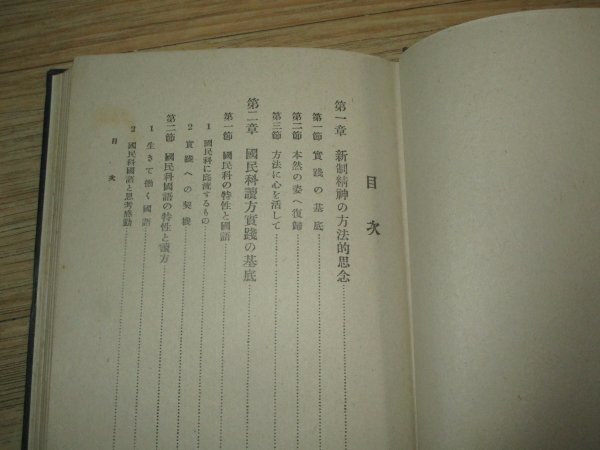 目次
第一章 新制精神の方法的思念
第一節 實踐の基底
第二節 本然の姿へ復歸
第三節 方法に心を活して
第二章 國民科讀方實踐の基底
第一節 國民科の特性と國語
1 國民科に底流するもの
2 實踐への契機
第二節 國民科國語の特性と讀方
1 生きて働く國語
2 國民科國語と思考感動
目次